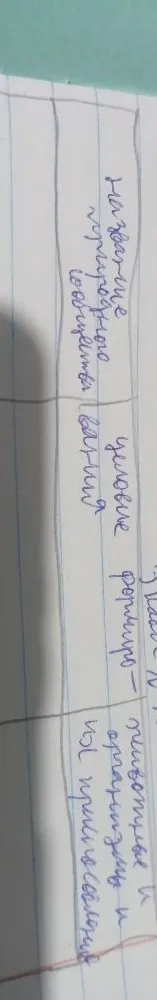 название
природного
сообщества
условие формиро-
вания
животные и
организмы и
их приспособления